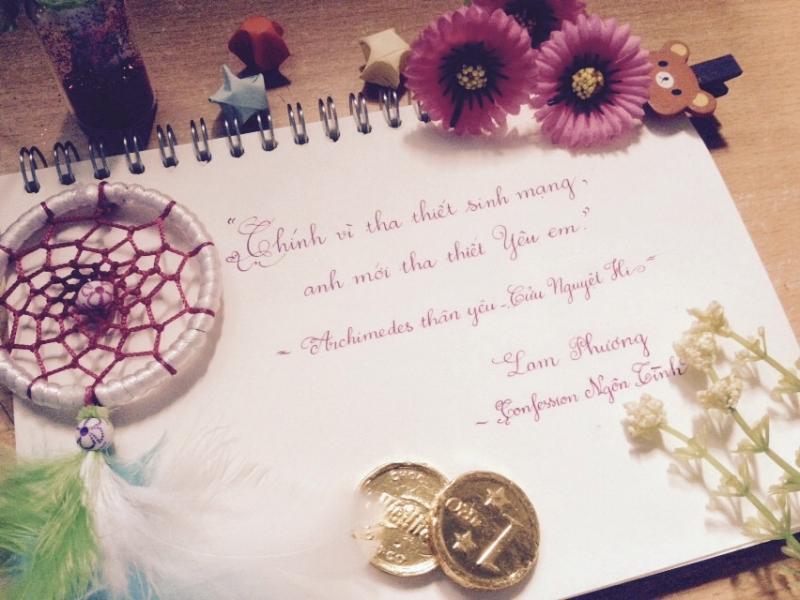 "Chính vì tha thiết sinh mạng,
anh mới tha thiết Yêu em."
~ Archimedes thân yêu - Cửu Nguyệt Hi ~
Lam Phương
~ Confession Ngôn Tình
1